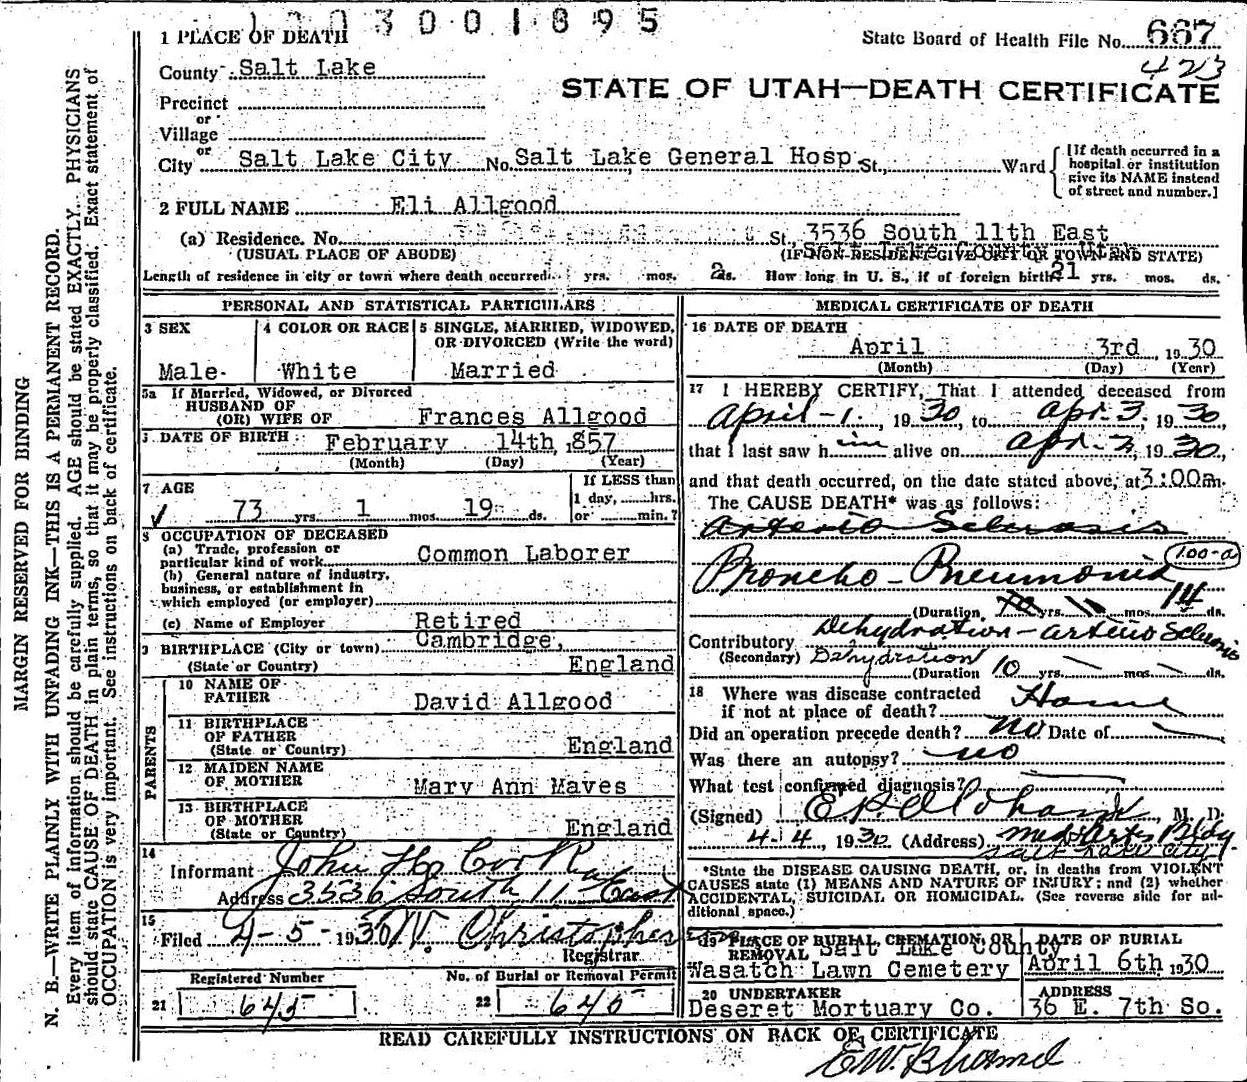 3001895
1 PLACE OF DEATH
State Board of Health File No. 667
423
County Salt Lake
STATE OF UTAH—DEATH CERTIFICATE
Precinct
or
Village
or
City Salt Lake City No. Salt Lake General Hosp. St., Ward
[If death occurred in a hospital or institution give its NAME instead of street and number.]
2 FULL NAME Eli Allgood
(a) Residence. No. St. 3536 South 11th East
Salt Lake County Utah
(USUAL PLACE OF ABODE) (IF NON-RESIDENT GIVE CITY OR TOWN AND STATE)
Length of residence in city or town where death occurred yrs. mos. 2 ds. How long in U. S., if of foreign birth 21 yrs. mos. ds.
PERSONAL AND STATISTICAL PARTICULARS
3 SEX
Male
4 COLOR OR RACE
White
5 SINGLE, MARRIED, WIDOWED, OR DIVORCED (Write the word)
Married
5a If Married, Widowed, or Divorced
HUSBAND OF
(OR) WIFE OF Frances Allgood
DATE OF BIRTH February 14th, 1857
(Month) (Day) (Year)
7 AGE
73 yrs. 1 mos. 19 ds.
If LESS than
1 day, hrs.
or min.?
8 OCCUPATION OF DECEASED
(a) Trade, profession or
particular kind of work Common Laborer
(b) General nature of industry,
business, or establishment in
which employed (or employer)
(c) Name of Employer Retired
9 BIRTHPLACE (City or town) Cambridge,
(State or Country) England
PARENTS
10 NAME OF
FATHER David Allgood
11 BIRTHPLACE
OF FATHER
(State or Country) England
12 MAIDEN NAME
OF MOTHER Mary Ann Maves
13 BIRTHPLACE
OF MOTHER
(State or Country) England
14
Informant John
Address 3536 South 11 East
15
Filed 4-5-1930 Christopherson
Registrar
Registered Number No. of Burial or Removal Permit
21 645 22 645
MEDICAL CERTIFICATE OF DEATH
16 DATE OF DEATH
April 3rd, 1930
(Month) (Day) (Year)
17 I HEREBY CERTIFY, That I attended deceased from
April-1, 1930, to Apr. 3, 1930
that I last saw him alive on Apr-3, 1930,
and that death occurred, on the date stated above, at 3:00am.
The CAUSE DEATH* was as follows:
Arterio Sclerosis
100-a
Broncho-Pneumonia
(Duration 10 yrs. mos. 14 ds.
Contributory Dehydration - Arterio Sclerosis
(Secondary) Dehydration (Duration 10 yrs. mos. ds.
18 Where was disease contracted
if not at place of death? Home
Did an operation precede death? No Date of
Was there an autopsy? no
What test confirmed diagnosis?
(Signed) M. D.
4-4, 1930. (Address) Med Arts Bldg
Salt Lake City
*State the DISEASE CAUSING DEATH, or, in deaths from VIOLENT
CAUSES state (1) MEANS AND NATURE OF INJURY; and (2) whether
ACCIDENTAL, SUICIDAL OR HOMICIDAL. (See reverse side for additional space.)
19 PLACE OF BURIAL, CREMATION, OR
REMOVAL Salt Lake County
Wasatch Lawn Cemetery
DATE OF BURIAL
April 6th 1930
20 UNDERTAKER
Deseret Mortuary Co.
ADDRESS
36 E. 7th So.
READ CAREFULLY INSTRUCTIONS ON BACK OF CERTIFICATE
MARGIN RESERVED FOR BINDING
N. B.—WRITE PLAINLY WITH UNFADING INK—THIS IS A PERMANENT RECORD.
Every item of information should be carefully supplied. AGE should be stated EXACTLY. PHYSICIANS
should state CAUSE OF DEATH in plain terms, so that it may be properly classified. Exact statement of
OCCUPATION is very important. See instructions on back of certificate.